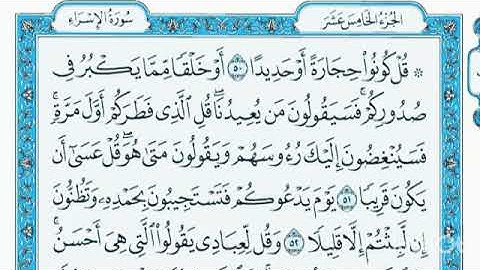 سُورَةُ الإِسْرَاءِ
الجُزْءُ الخَامِسَ عَشَرَ
۞ قُلْ كُونُوا۟ حِجَارَةً أَوْ حَدِيدًا ٥٠ أَوْ خَلْقًا مِّمَّا يَكْبُرُ فِى
صُدُورِكُمْ ۚ فَسَيَقُولُونَ مَن يُعِيدُنَا ۖ قُلِ ٱلَّذِى فَطَرَكُمْ أَوَّلَ مَرَّةٍ ۚ
فَسَيُنْغِضُونَ إِلَيْكَ رُءُوسَهُمْ وَيَقُولُونَ مَتَىٰ هُوَ ۖ قُلْ عَسَىٰٓ أَن
يَكُونَ قَرِيبًا ٥١ يَوْمَ يَدْعُوكُمْ فَتَسْتَجِيبُونَ بِحَمْدِهِۦ وَتَظُنُّونَ
إِن لَّبِثْتُمْ إِلَّا قَلِيلًا ٥٢ وَقُل لِّعِبَادِى يَقُولُوا۟ ٱلَّتِى هِىَ أَحْسَنُ ۚ